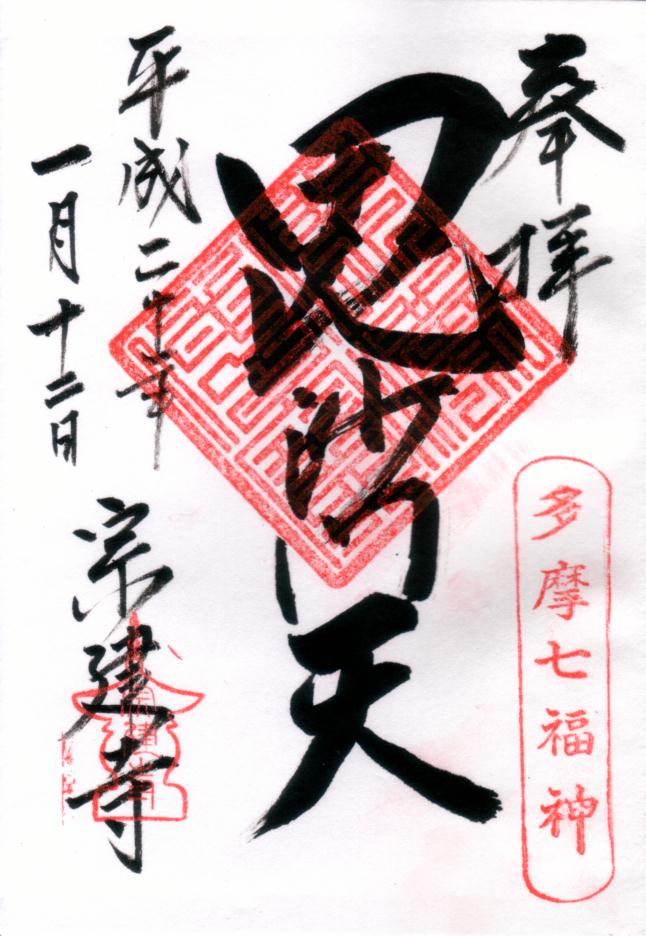 奉拝
多摩七福神
毘沙門天
平成二十年
一月十二日
宗建寺